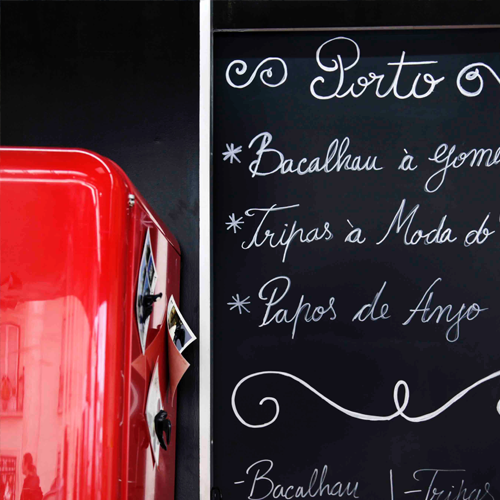 Porto
* Bacalhau à Gome
* Tripas à Moda do
* Papos de Anjo
-Bacalhau |-Tripas